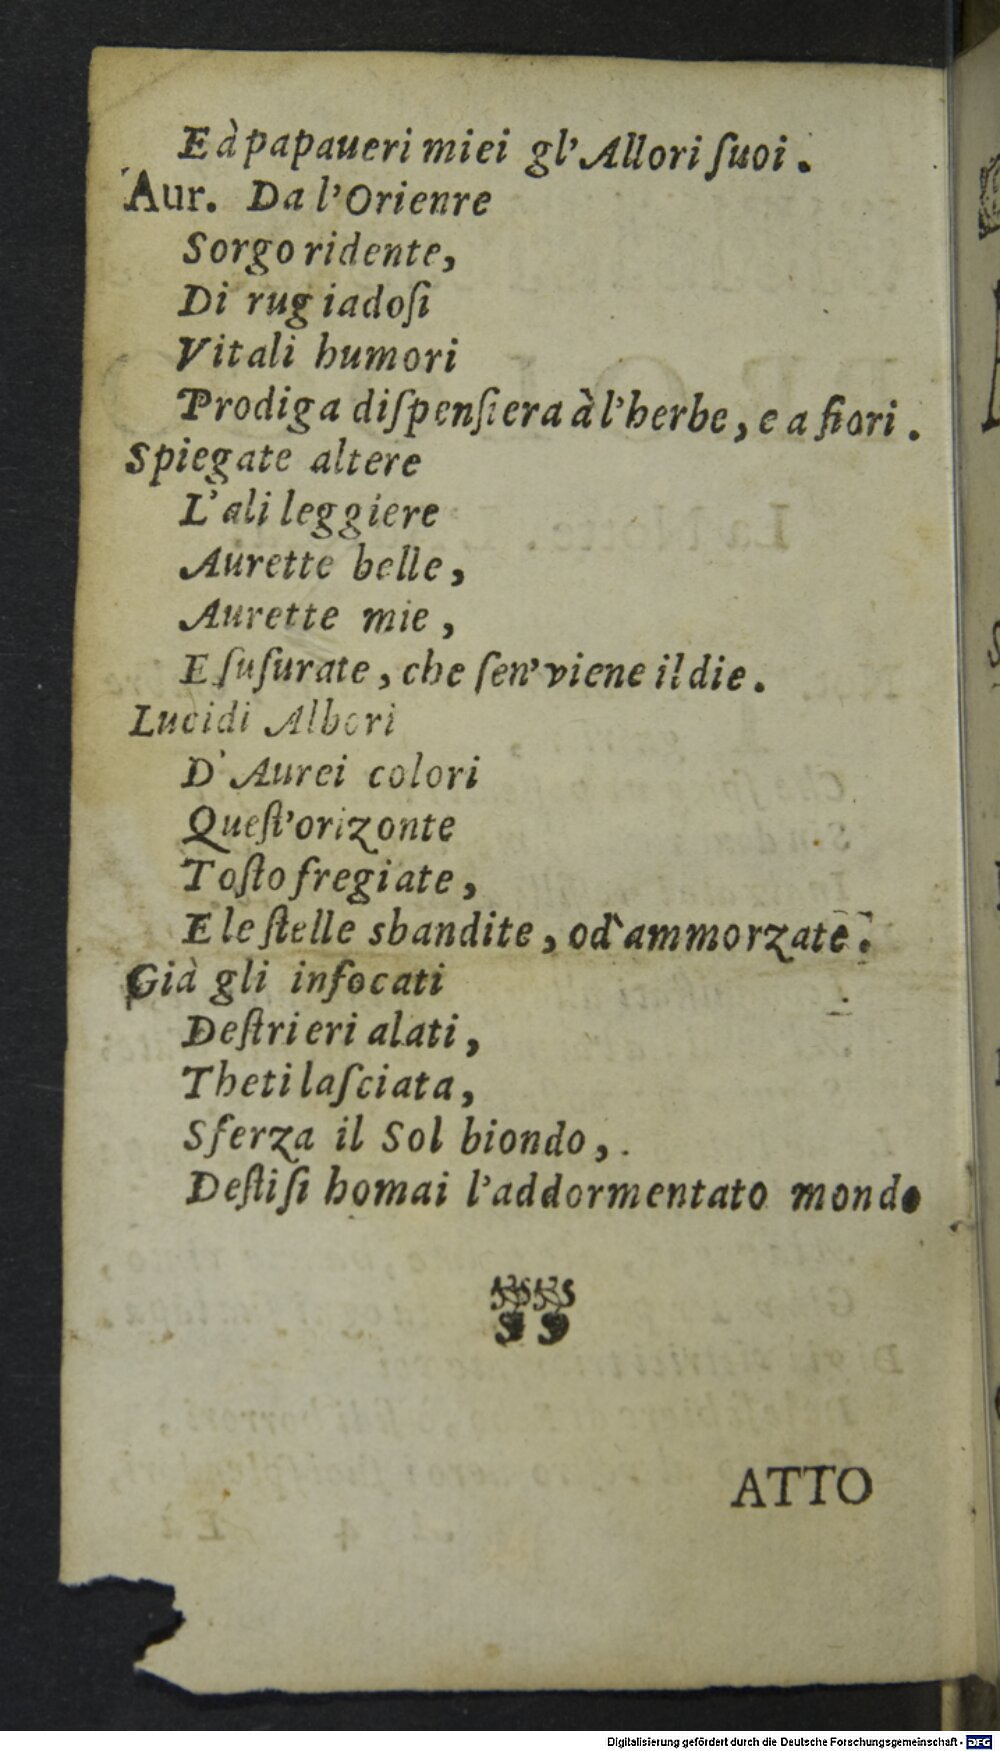 E à papaueri miei gl' Allori ſuoi.
Aur. Da l'Orienre
Sorgo ridente,
Di rugiadoſi
Vitali humori
Prodiga diſpenſiera à l'herbe, e a fiori.
Spiegate altere
L'ali leggiere
Aurette belle,
Aurette mie,
E ſuſurate, che ſen' viene il die.
Lucidi Albori
D'Aurei colori
Queſt'orizonte
Toſto fregiate,
E le ſtelle sbandite, od' ammorzate.
Già gli infocati
Deſtrieri alati,
Theti laſciata,
Sferza il Sol biondo,.
Deſtiſi homai l'addormentato mondo
ATTO
Digitalisierung gefördert durch die Deutsche Forschungsgemeinschaft - DFG